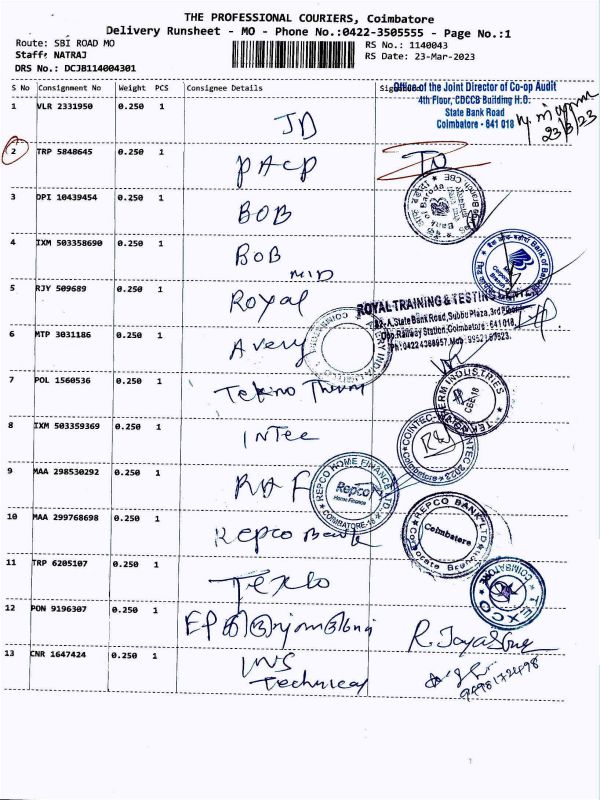 THE PROFESSIONAL COURIERS, Coimbatore
Delivery Runsheet - MO - Phone No.:0422-3505555 - Page No.:1
Route: SBI ROAD MO
RS No.: 1140043
Staff: NATRAJ
RS Date: 23-Mar-2023
DRS No.: DCJB114004301
S No Consignment No Weight PCS Consignee Details
Office of the Joint Director of Co-op Audit
4th Floor, CDCCB Building H.O.
State Bank Road
Coimbatore - 641 018
23/3/23
1 VLR 2331950 0.250 1 JD
2 TRP 5848645 0.250 1 PACP
3 DPI 10439454 0.250 1 BOB
Bank of Baroda
4 IXM 503358690 0.250 1 BOB
MID
Bank of Baroda
5 RJY 509689 0.250 1 Royal
ROYAL TRAINING & TESTING
State Bank Road, Subbu Plaza, 3rd Floor
Opp. Railway Station, Coimbatore - 641 018
6 MTP 3031186 0.250 1 Avery
7 POL 1560536 0.250 1 Tekno Therm
TEKNOTHERM INDUSTRIES
CBE-18
8 IXM 503359369 0.250 1 INTec
9 MAA 298530292 0.250 1 RHF
REPCO HOME FINANCE LTD
Repco
Home Finance
COIMBATORE-18
10 MAA 299768698 0.250 1 Repco Bank
REPCO BANK LTD
Coimbatore
Corporate Branch
11 TRP 6205107 0.250 1 Texco
TEXCO
COIMBATORE
12 PON 9196307 0.250 1
13 CNR 1647424 0.250 1
Technical